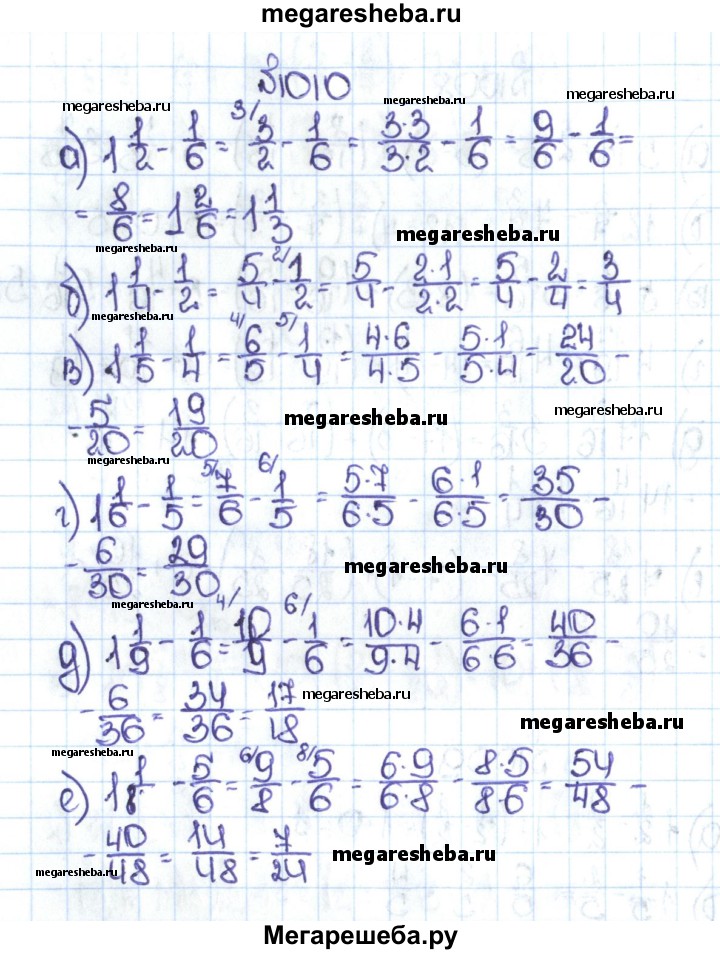 megaresheba.ru
№1010
megaresheba.ru megaresheba.ru megaresheba.ru
а) 1 1/2 - 1/6 = 3/ 3/2 - 1/6 = 3·3/3·2 - 1/6 = 9/6 - 1/6 =
= 8/6 = 1 2/6 = 1 1/3
megaresheba.ru
megaresheba.ru
б) 1 1/4 - 1/2 = 5/4 - 2/ 1/2 = 5/4 - 2·1/2·2 = 5/4 - 2/4 = 3/4
megaresheba.ru
в) 1 1/5 - 1/4 = 4/ 6/5 - 5/ 1/4 = 4·6/4·5 - 5·1/5·4 = 24/20 -
megaresheba.ru
- 5/20 = 19/20
megaresheba.ru megaresheba.ru
megaresheba.ru
г) 1 1/6 - 1/5 = 5/ 7/6 - 6/ 1/5 = 5·7/6·5 - 6·1/6·5 = 35/30 -
- 6/30 = 29/30
megaresheba.ru
megaresheba.ru
д) 1 1/9 - 1/6 = 4/ 10/9 - 6/ 1/6 = 10·4/9·4 - 6·1/6·6 = 40/36 -
- 6/36 = 34/36 = 17/18
megaresheba.ru
megaresheba.ru
megaresheba.ru
е) 1 1/8 - 5/6 = 6/ 9/8 - 8/ 5/6 = 6·9/6·8 - 8·5/8·6 = 54/48 -
- 40/48 = 14/48 = 7/24
megaresheba.ru
megaresheba.ru
Мегарешеба.ру